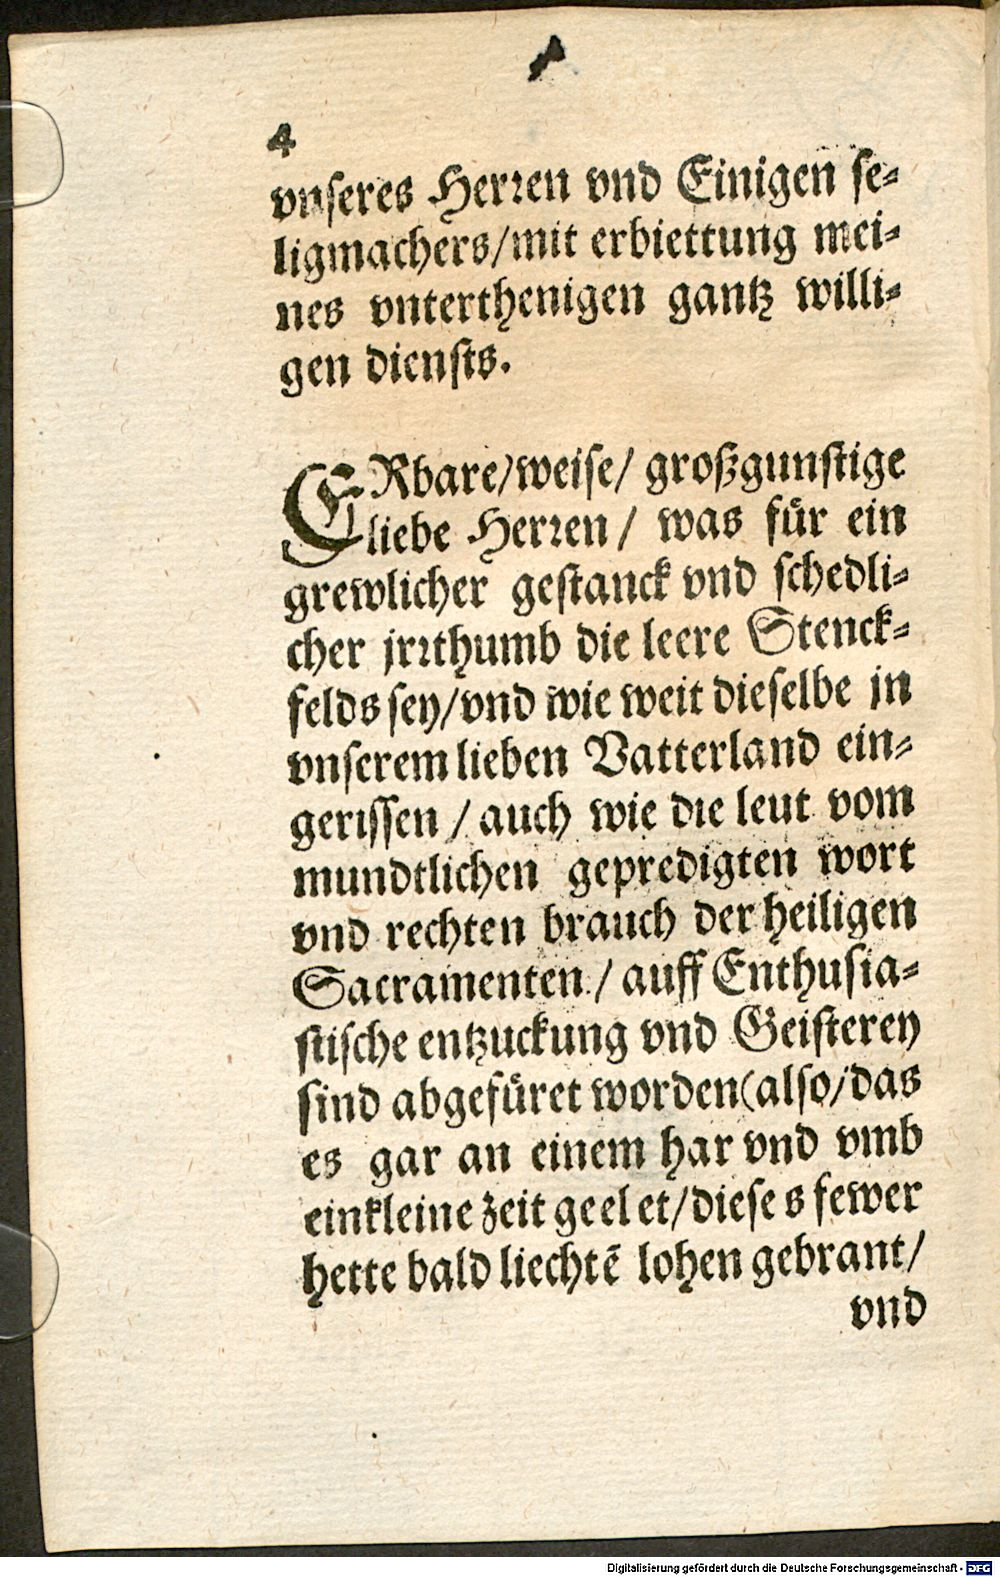 4
vnseres Herren vnd Einigen se-
ligmachers/mit erbiettung mei-
nes vnterthenigen gantz willi-
gen diensts.
ERbare/weise/ großgunstige
liebe Herren/ was für ein
grewlicher gestanck vnd schedli-
cher jrrthumb die leere Stenck-
felds sey/vnd wie weit dieselbe jn
vnserem lieben Vatterland ein-
gerissen / auch wie die leut vom
mundtlichen gepredigten wort
vnd rechten brauch der heiligen
Sacramenten / auff Enthusia-
stische entzuckung vnd Geisterey
sind abgefüret worden(also/das
es gar an einem har vnd vmb
einkleine zeit geelet/dieses fewer
hette bald liechtē lohen gebrant/
vnd
Digitalisierung gefördert durch die Deutsche Forschungsgemeinschaft - DFG